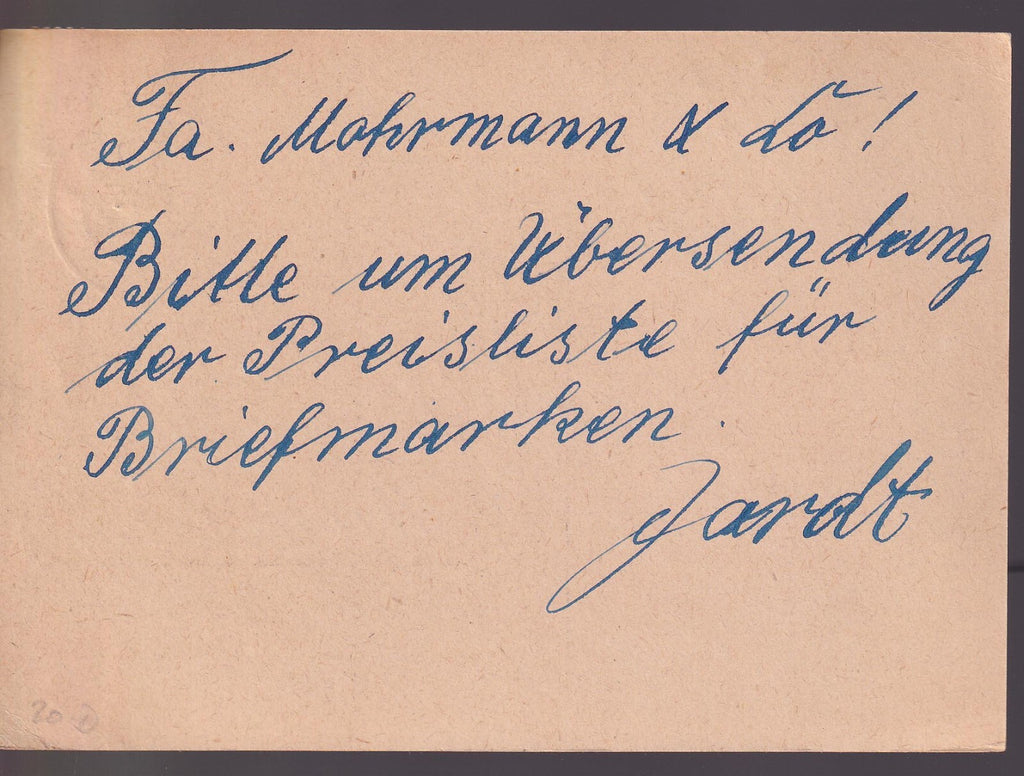 Fa. Mohrmann & Co!
Bitte um Übersendung
der Preisliste für
Briefmarken.
Jardt